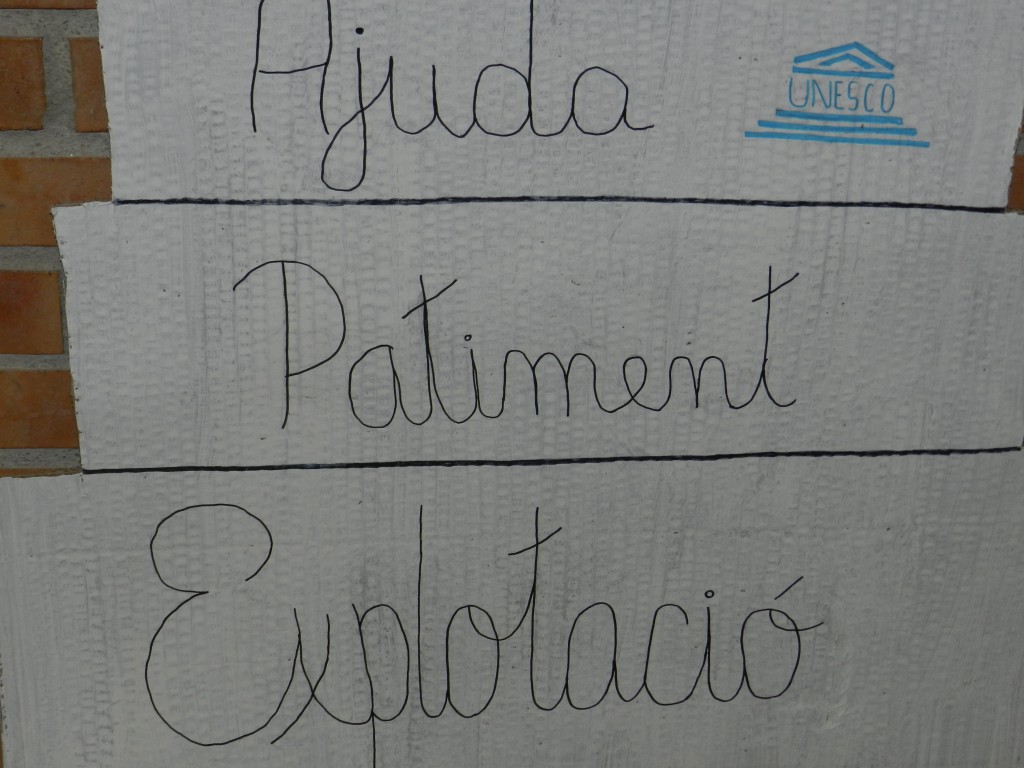 Ajuda
UNESCO
Patiment
Explotació